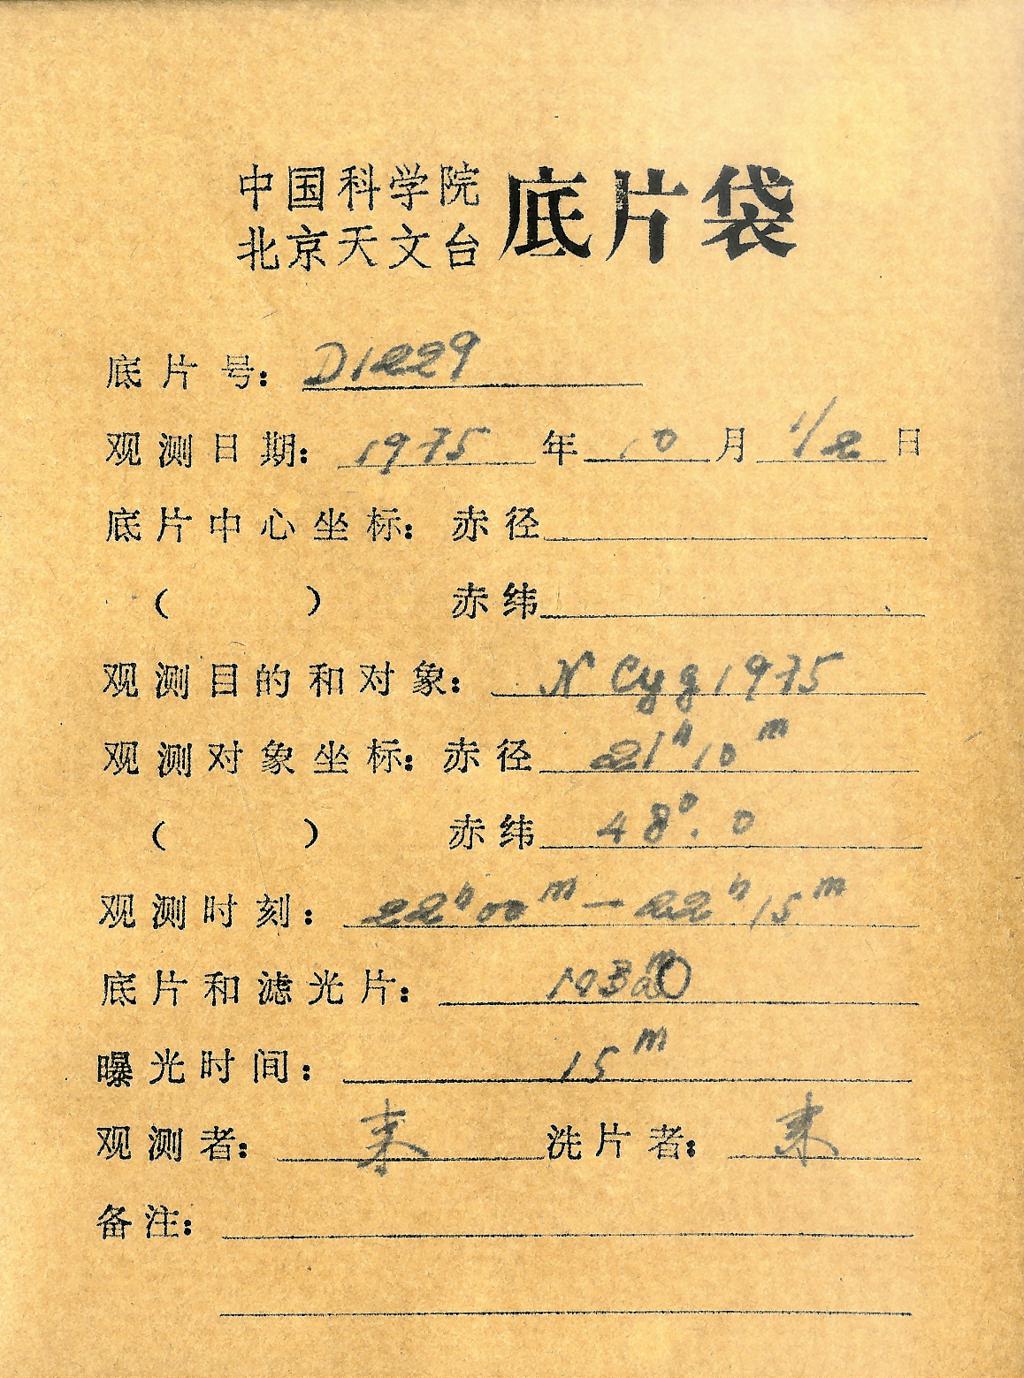 中国科学院
北京天文台 底片袋
底片号: D1229
观测日期: 1975 年 10 月 1/2 日
底片中心坐标: 赤径
( ) 赤纬
观测目的和对象: N Cyg 1975
观测对象坐标: 赤径 21ʰ10ᵐ
( ) 赤纬 48°.0
观测时刻: 22ʰ00ᵐ — 22ʰ15ᵐ
底片和滤光片:
曝光时间: 15ᵐ
观测者: 洗片者:
备注: